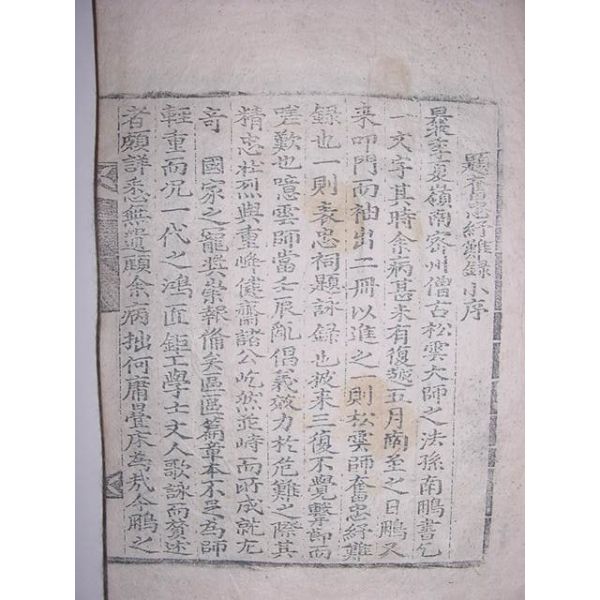 題奮忠紓難錄小序
曩歲季夏嶺南密州僧古松雲大師之法孫南鵬書乞
一文字其時余病甚未有復越五月南至之日鵬又
來叩門而袖出二冊以進之一則松雲師奮忠紓難
錄也一則表忠祠題詠錄也披來三復不覺擊節而
嗟歎也噫雲師當壬辰亂倡義效力於危難之際其
精忠壯烈與重峰健齋諸公屹然並時而所成就尤
奇 國家之寵奬崇報備矣區區篇章本不足為師
輕重而况一代之鴻匠鉅工學士文人歌詠而贊述
者頗詳悉無遺顧余病拙何庸疊床為哉今鵬之